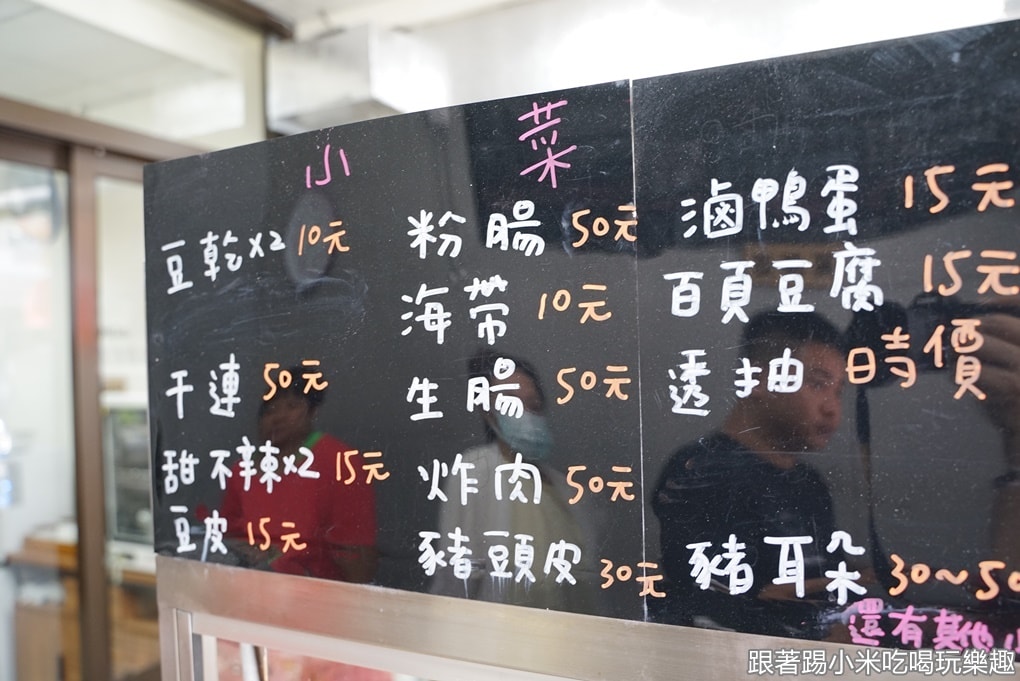 小菜
豆乾x2 10元
干連 50元
甜不辣x2 15元
豆皮 15元
粉腸 50元
海帶 10元
生腸 50元
炸肉 50元
豬頭皮 30元
滷鴨蛋 15元
百頁豆腐 15元
透抽 時價
豬耳朵 30~50
還有其他小
跟著踢小米吃喝玩樂趣